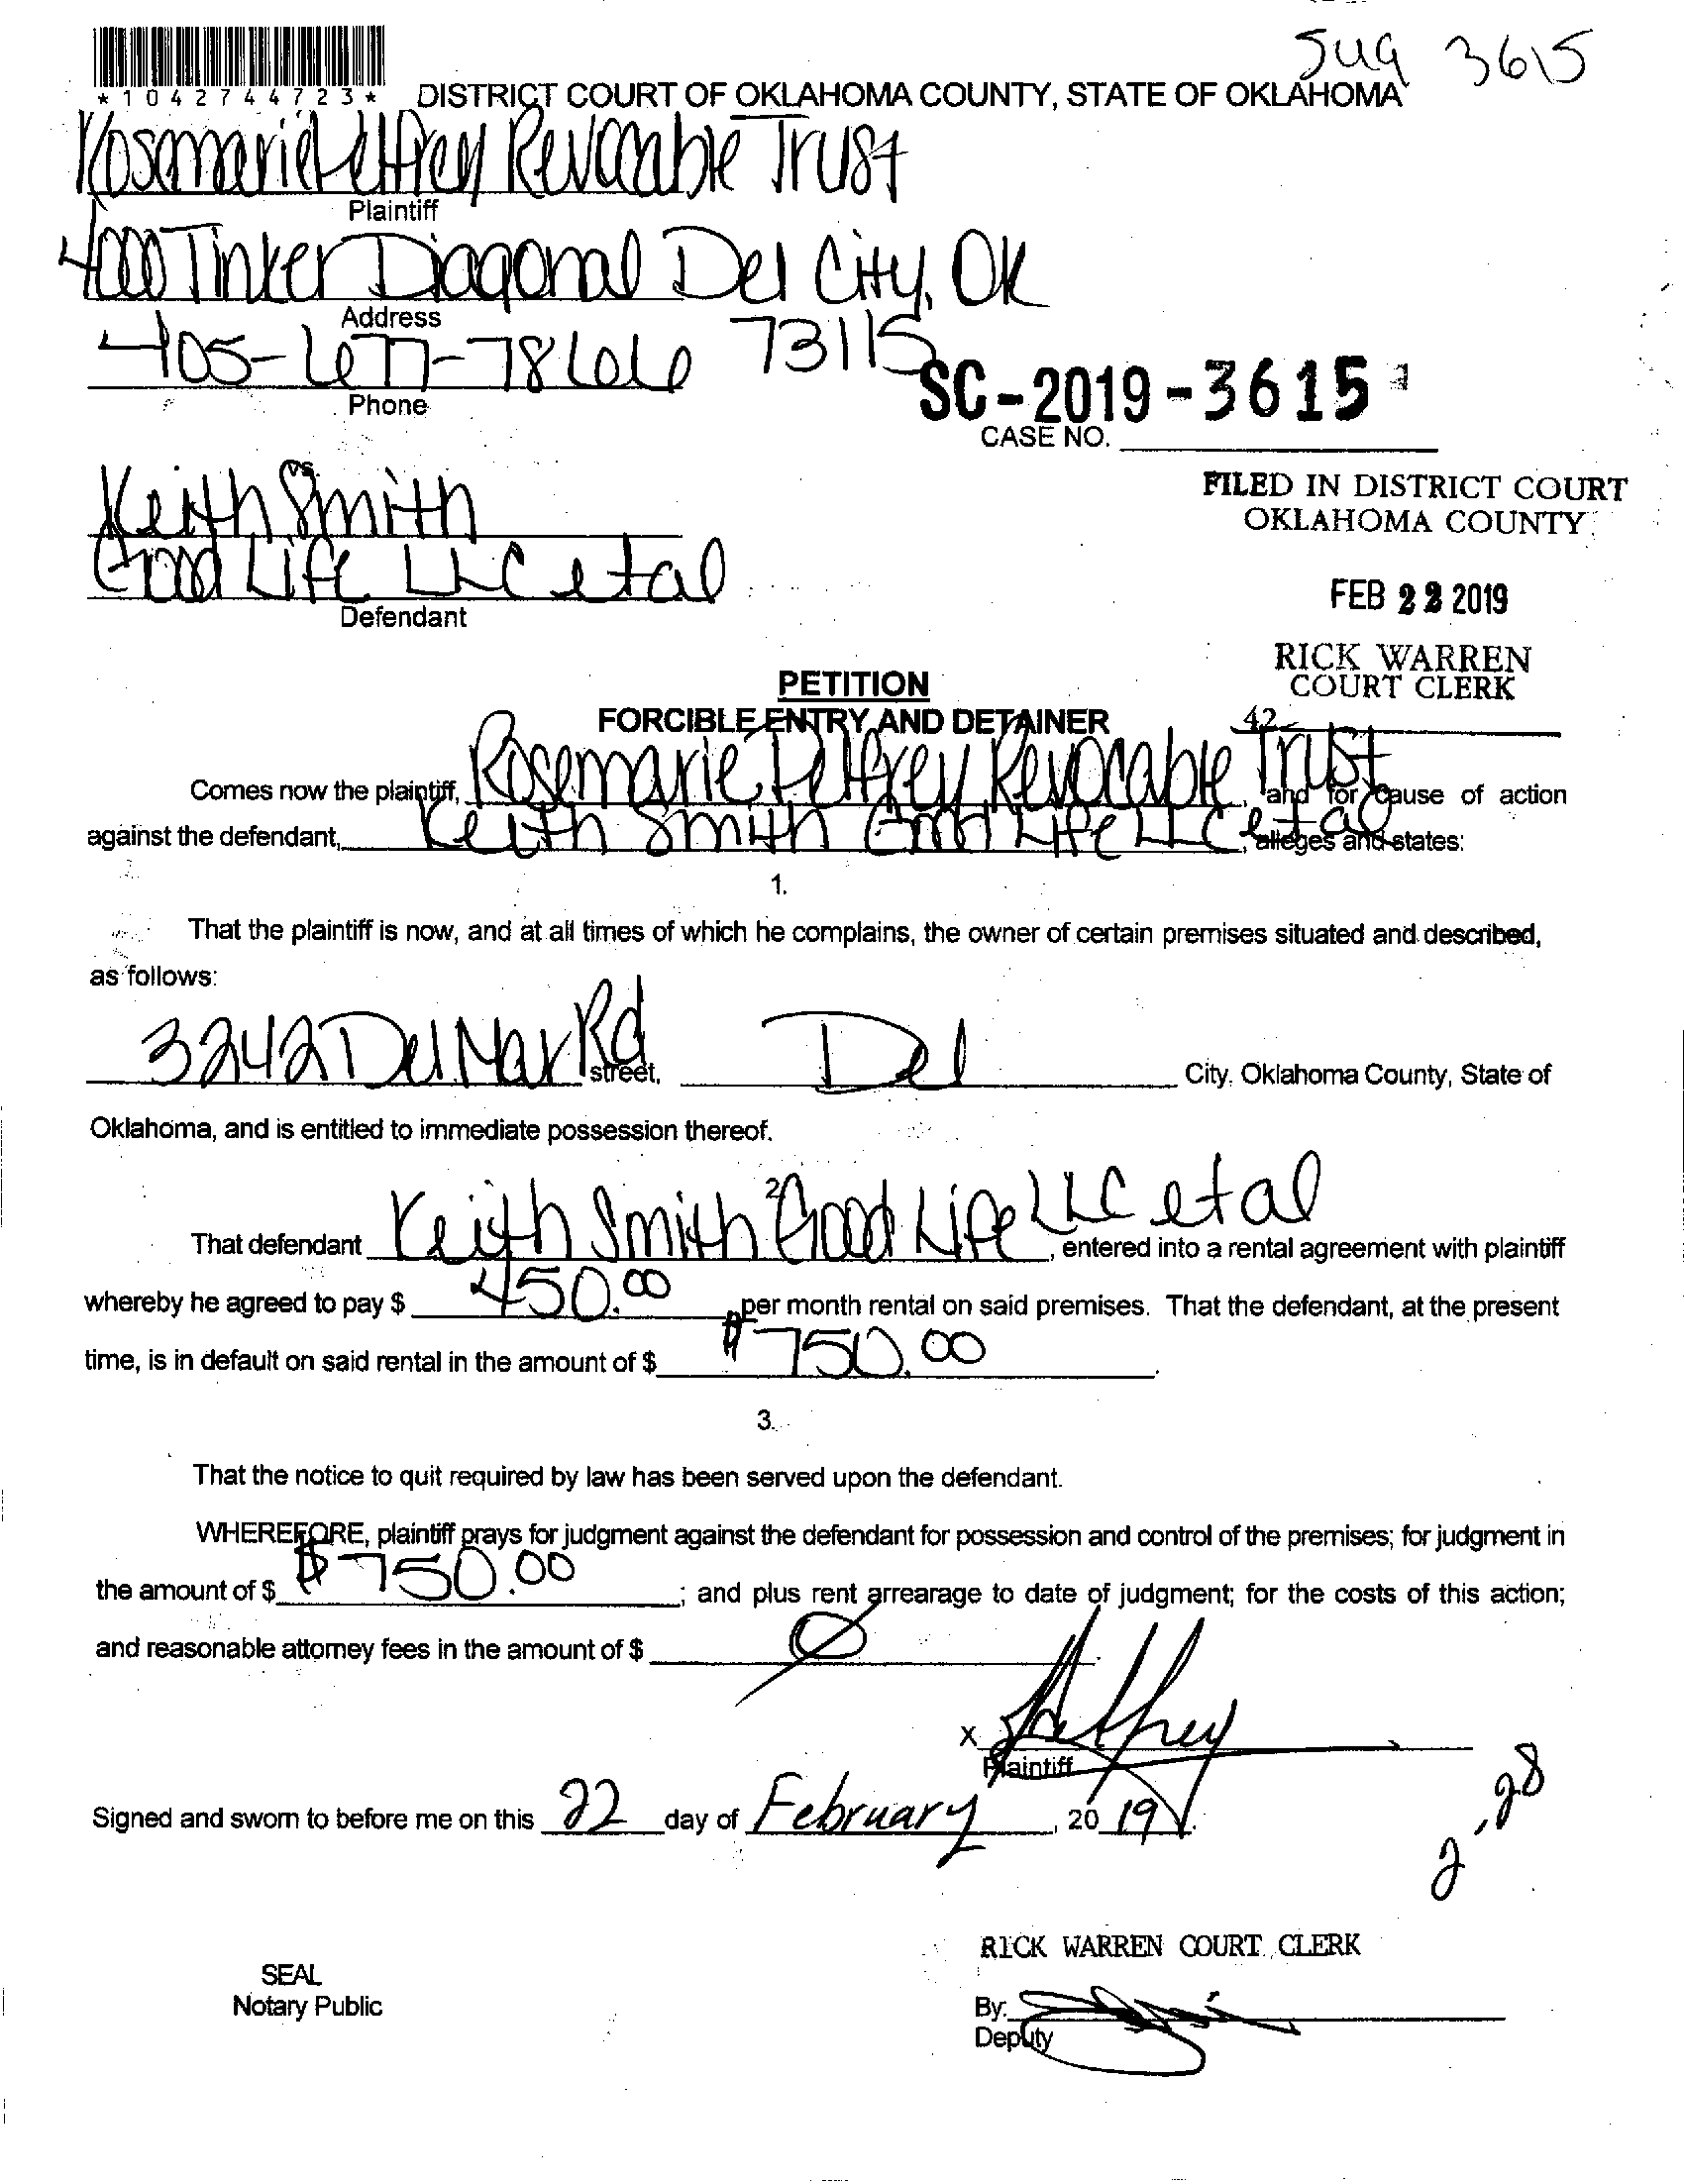 Jug 3615
*1042744723* DISTRICT COURT OF OKLAHOMA COUNTY, STATE OF OKLAHOMA
Rosemarie Pelfrey Revocable Trust
Plaintiff
4000 Tinker Diagonal Del City, OK
Address
405-677-7866 73115
Phone
SC-2019-3615
CASE NO.
vs.
Keith Smith
Good Life LLC et al
Defendant
FILED IN DISTRICT COURT
OKLAHOMA COUNTY
FEB 22 2019
RICK WARREN
COURT CLERK
42
PETITION
FORCIBLE ENTRY AND DETAINER
Comes now the plaintiff, Rosemarie Pelfrey Revocable Trust, and for cause of action
against the defendant, Keith Smith Good Life LLC et al, alleges and states:
1.
That the plaintiff is now, and at all times of which he complains, the owner of certain premises situated and described,
as follows:
3242 Del Mar Rd street, Del City, Oklahoma County, State of
Oklahoma, and is entitled to immediate possession thereof.
2.
That defendant Keith Smith Good Life LLC et al, entered into a rental agreement with plaintiff
whereby he agreed to pay $ 450.00 per month rental on said premises. That the defendant, at the present
time, is in default on said rental in the amount of $ $750.00.
3.
That the notice to quit required by law has been served upon the defendant.
WHEREFORE, plaintiff prays for judgment against the defendant for possession and control of the premises; for judgment in
the amount of $ $750.00; and plus rent arrearage to date of judgment; for the costs of this action;
and reasonable attorney fees in the amount of $ Ø.
X Pelfrey
Plaintiff
Signed and sworn to before me on this 22 day of February, 2019.
2,28
RICK WARREN COURT CLERK
SEAL
Notary Public
By:
Deputy